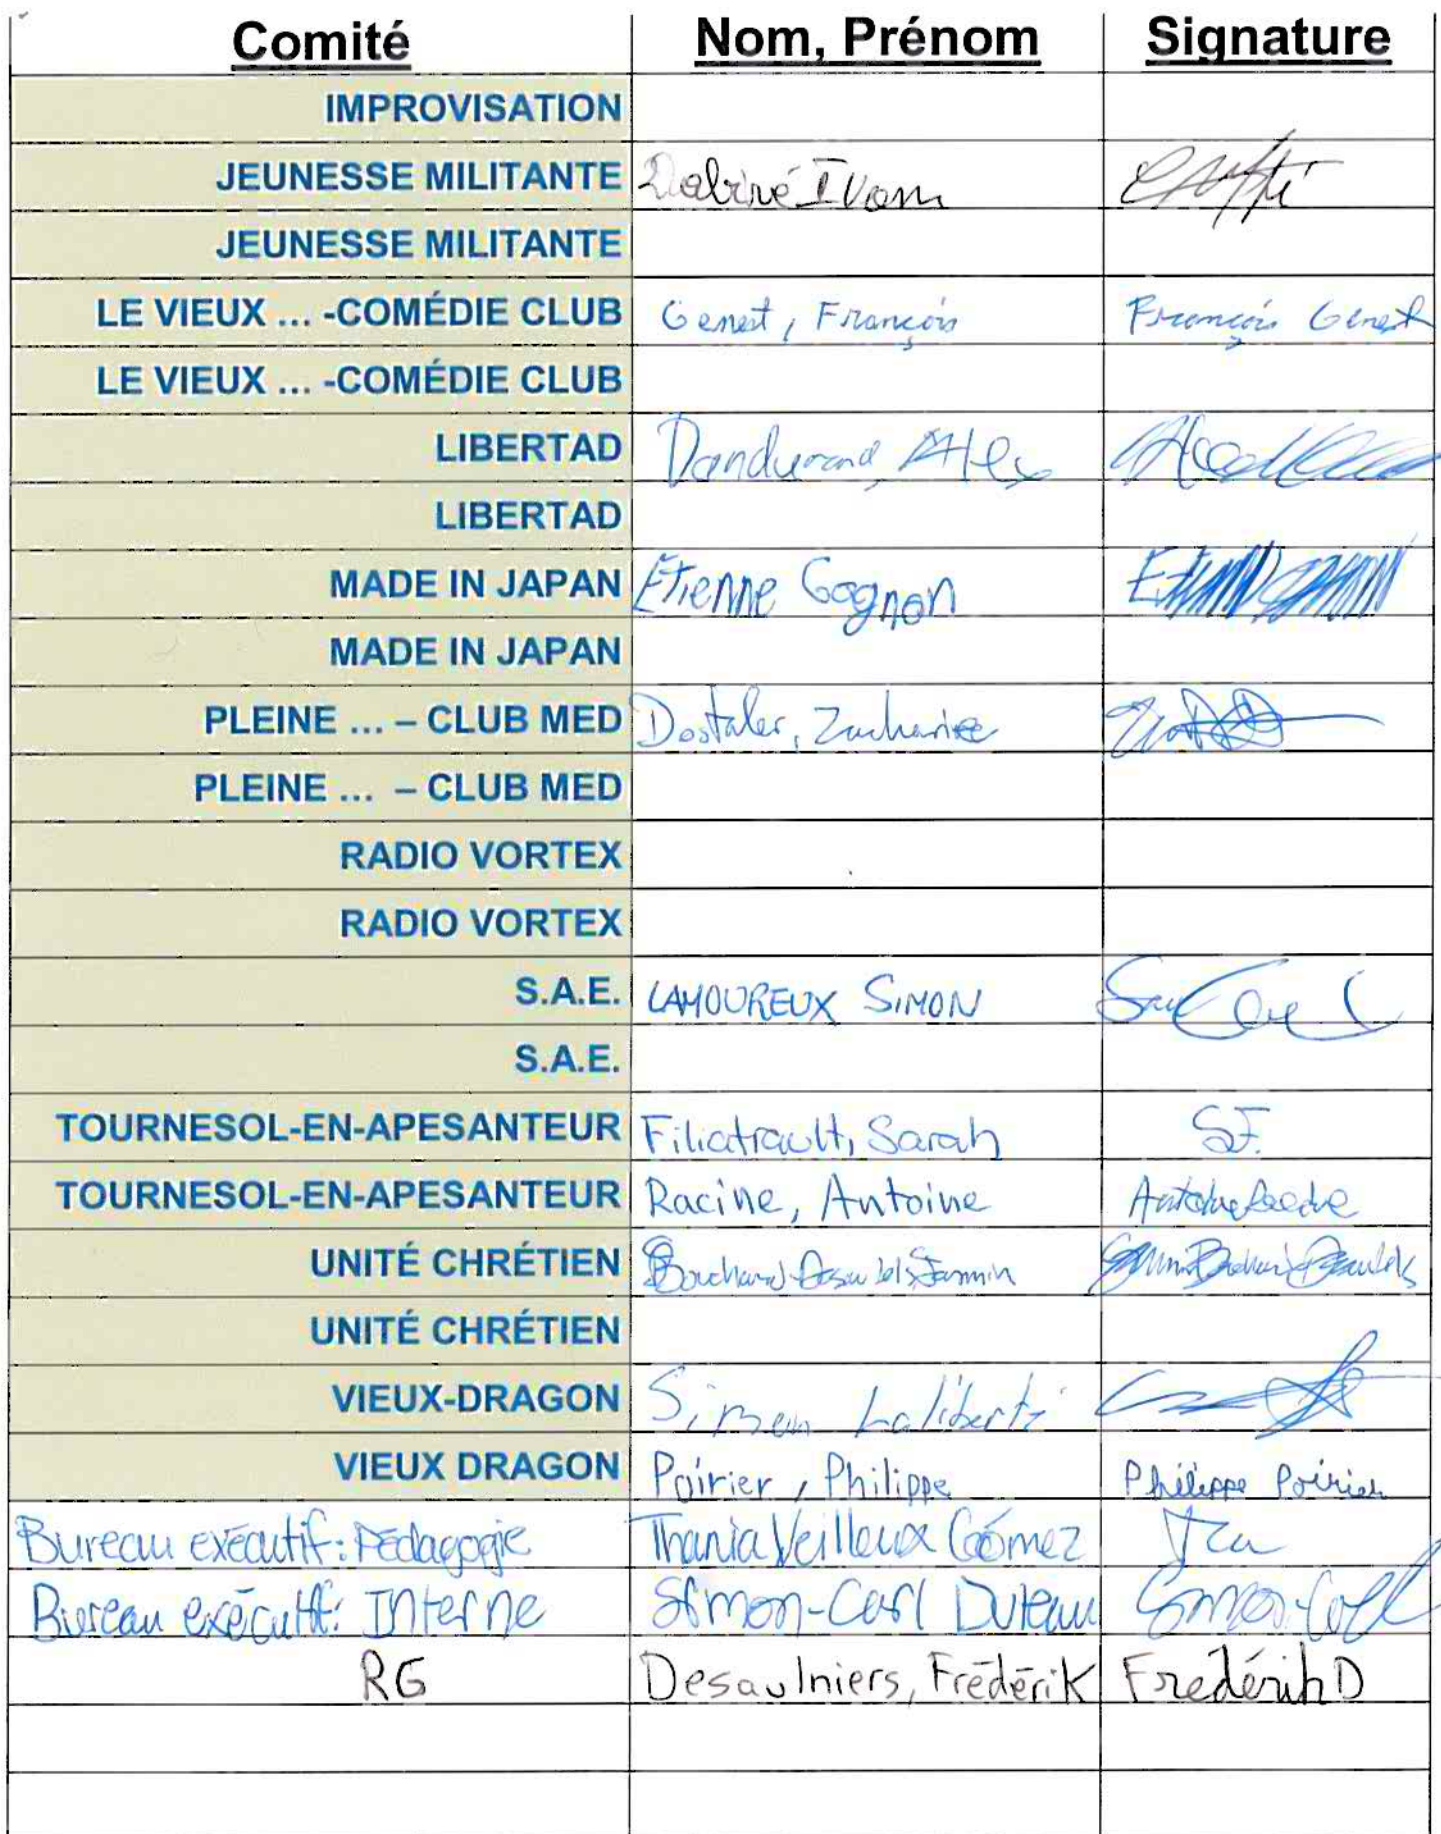 Comité Nom, Prénom Signature
IMPROVISATION
JEUNESSE MILITANTE Dabiré Ivan
JEUNESSE MILITANTE
LE VIEUX ... -COMÉDIE CLUB Genest, François François Genest
LE VIEUX ... -COMÉDIE CLUB
LIBERTAD Dandurand, Alex
LIBERTAD
MADE IN JAPAN Étienne Gagnon
MADE IN JAPAN
PLEINE ... – CLUB MED Dostaler, Zacharie
PLEINE ... – CLUB MED
RADIO VORTEX
RADIO VORTEX
S.A.E. LAMOUREUX SIMON
S.A.E.
TOURNESOL-EN-APESANTEUR Filiatrault, Sarah S.F.
TOURNESOL-EN-APESANTEUR Racine, Antoine Antoine Racine
UNITÉ CHRÉTIEN Bouchard-Desautels, Jasmin
UNITÉ CHRÉTIEN
VIEUX-DRAGON Simon Laliberté
VIEUX DRAGON Poirier, Philippe Philippe Poirier
Bureau exécutif: Pédagogie Thania Veilleux Gómez
Bureau exécutif: Interne Simon-Carl Duteau
RG Desaulniers, Frédérik Frédérik D